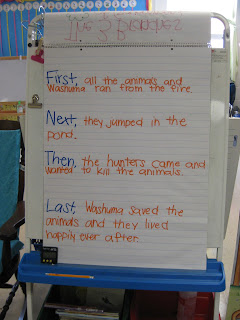 First, all the animals and
Washuma ran from the fire.
Next, they jumped in the
pond.
Then, the hunters came and
wanted to kill the animals.
Last, Washuma saved the
animals and they lived
happily ever after.